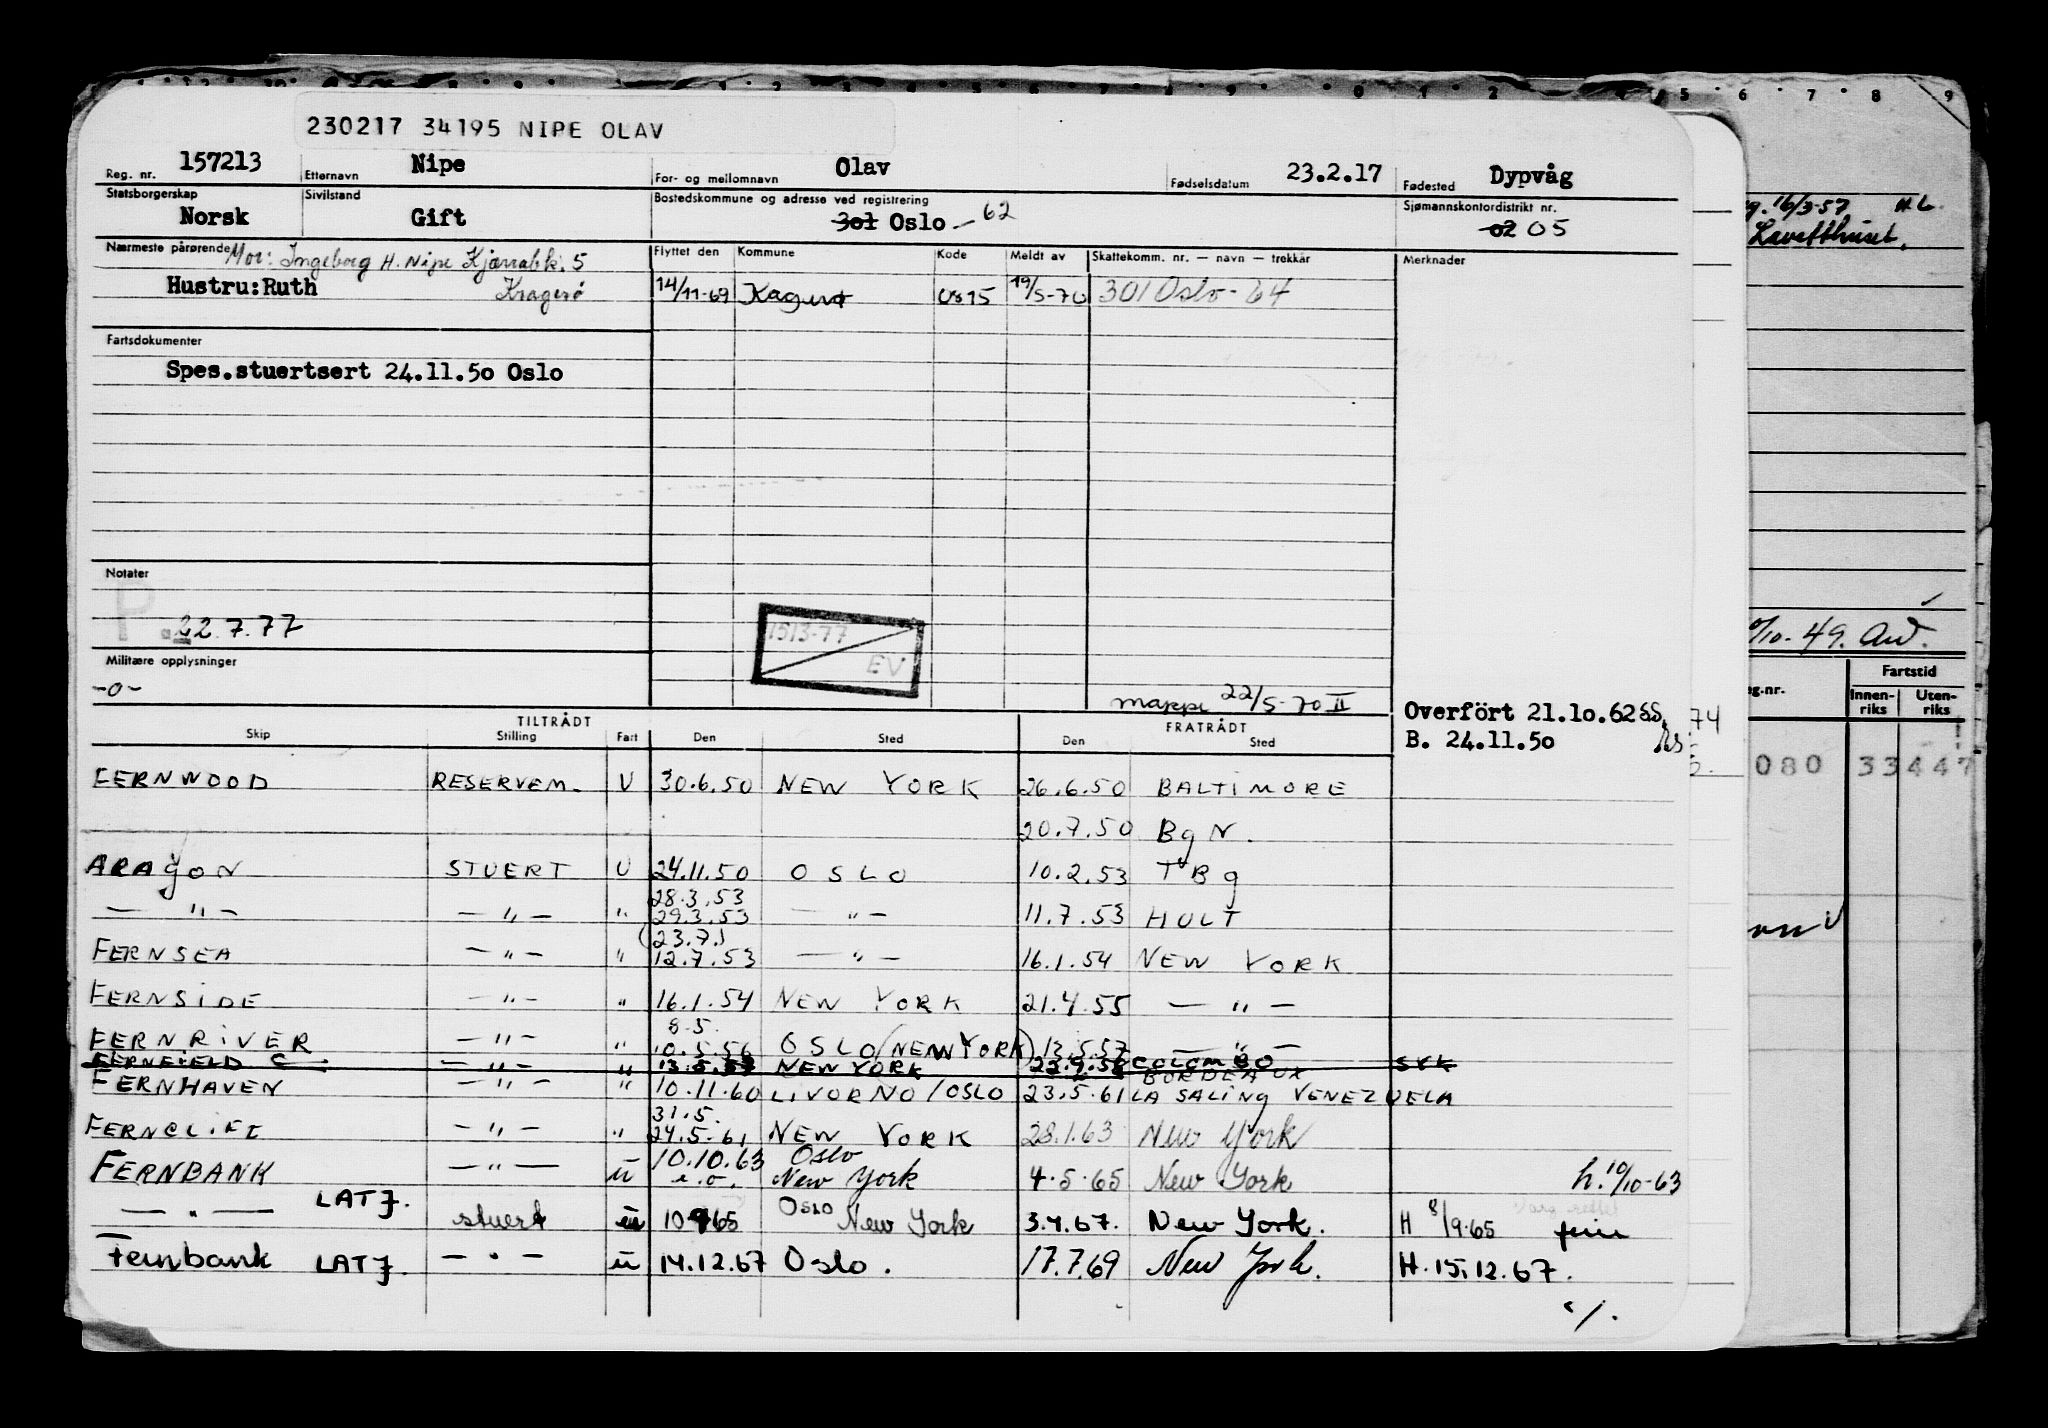 230217 34195 NIPE OLAV
Reg. nr. 157213 Etternavn Nipe For- og mellomnavn Olav Fødselsdatum 23.2.17 Fødested Dypvåg
Statsborgerskap Norsk Sivilstand Gift Bostedskommune og adresse ved registrering 301 Oslo - 62 Sjømannskontordistrikt nr. 02 05
Nærmeste pårørende Mor: Ingeborg H. Nipe 5
Hustru: Ruth Kragerø
Flyttet den Kommune Kode Meldt av Skattekomm. nr. — navn — trekkår Merknader
14/11-69 Kagerø 0815 19/5-70 301 Oslo - 64
Fartsdokumenter
Spes.stuertsert 24.11.50 Oslo
Notater
P 22.7.77
1513-77
EV
Militære opplysninger
-0-
mappe 22/5-70 II
Overført 21.10.62 SS.
B. 24.11.50
TILTRÅDT FRATRÅDT
Skip Stilling Fart Den Sted Den Sted
FERNWOOD RESERVEM. U 30.6.50 NEW YORK 26.6.50 BALTIMORE
20.7.50 BgN.
ARAGON STUERT U 24.11.50 OSLO 10.2.53 TBg
28.3.53
— " — — " — " 29.3.53 — " — 11.7.53 HOLT
(23.7.)
FERNSEA — " — " 12.7.53 — " — 16.1.54 NEW YORK
FERNSIDE — " — " 16.1.54 NEW YORK 21.4.55 — " —
8.5.
FERNRIVER — " — " 10.5.56 OSLO (NEW YORK) 13.5.57 — " —
FERNFIELD — " — " NEW YORK 22.9.58 COLOMBO SYK
BORDEAUX
FERNHAVEN — " — " 10.11.60 LIVORNO/OSLO 23.5.61 LA SALING VENEZUELA
31.5.
FERNCLIFF — " — " 24.5.61 NEW YORK 28.1.63 New York
10.10.63 Oslo
FERNBANK — " — u New York 4.5.65 New York h. 10/10-63
— " — LATJ. stuert u 10 9 65 Oslo New York 3.4.67. New York. H 8/9.65
Fernbank LATJ. — " — u 14.12.67 Oslo. 17.7.69 New York. H. 15.12.67.
·/.
16/3-57
10-49.
Fartstid
Innenriks Utenriks
74
080 33447
9